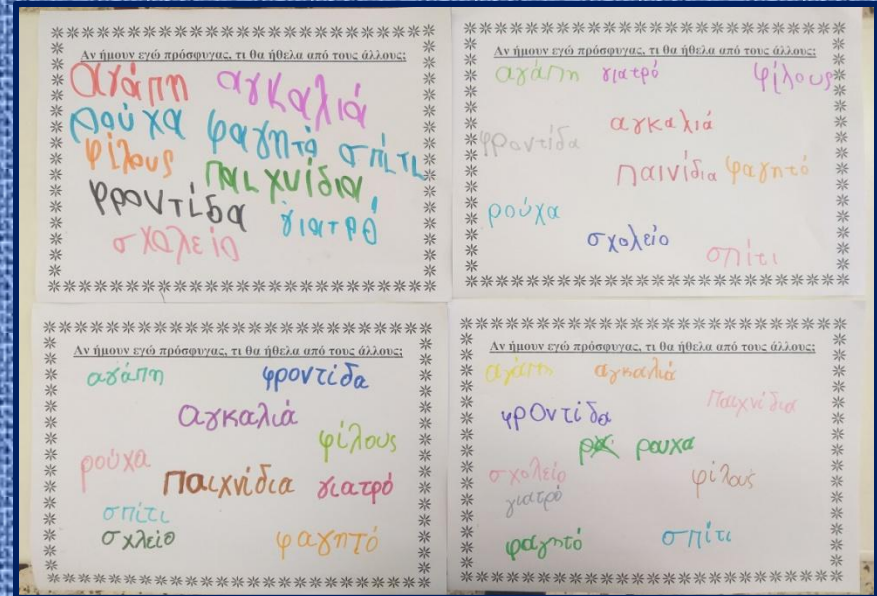 Αν ήμουν εγώ πρόσφυγας, τι θα ήθελα από τους άλλους;
αγάπη αγκαλιά
ρούχα φαγητό σπίτι
φίλους παιχνίδια
φροντίδα γιατρό
σχολείο
Αν ήμουν εγώ πρόσφυγας, τι θα ήθελα από τους άλλους;
αγάπη γιατρό φίλους
αγκαλιά
φροντίδα
παινίδια φαγητό
ρούχα
σχολείο
σπίτι
Αν ήμουν εγώ πρόσφυγας, τι θα ήθελα από τους άλλους;
αγάπη φροντίδα
αγκαλιά
φίλους
ρούχα
παιχνίδια γιατρό
σπίτι
σχλείο φαγητό
Αν ήμουν εγώ πρόσφυγας, τι θα ήθελα από τους άλλους;
αγάπη αγκαλιά
παιχνίδια
φροντίδα
ρουχα
σχολείο φίλους
γιατρό
φαγητό σπίτι